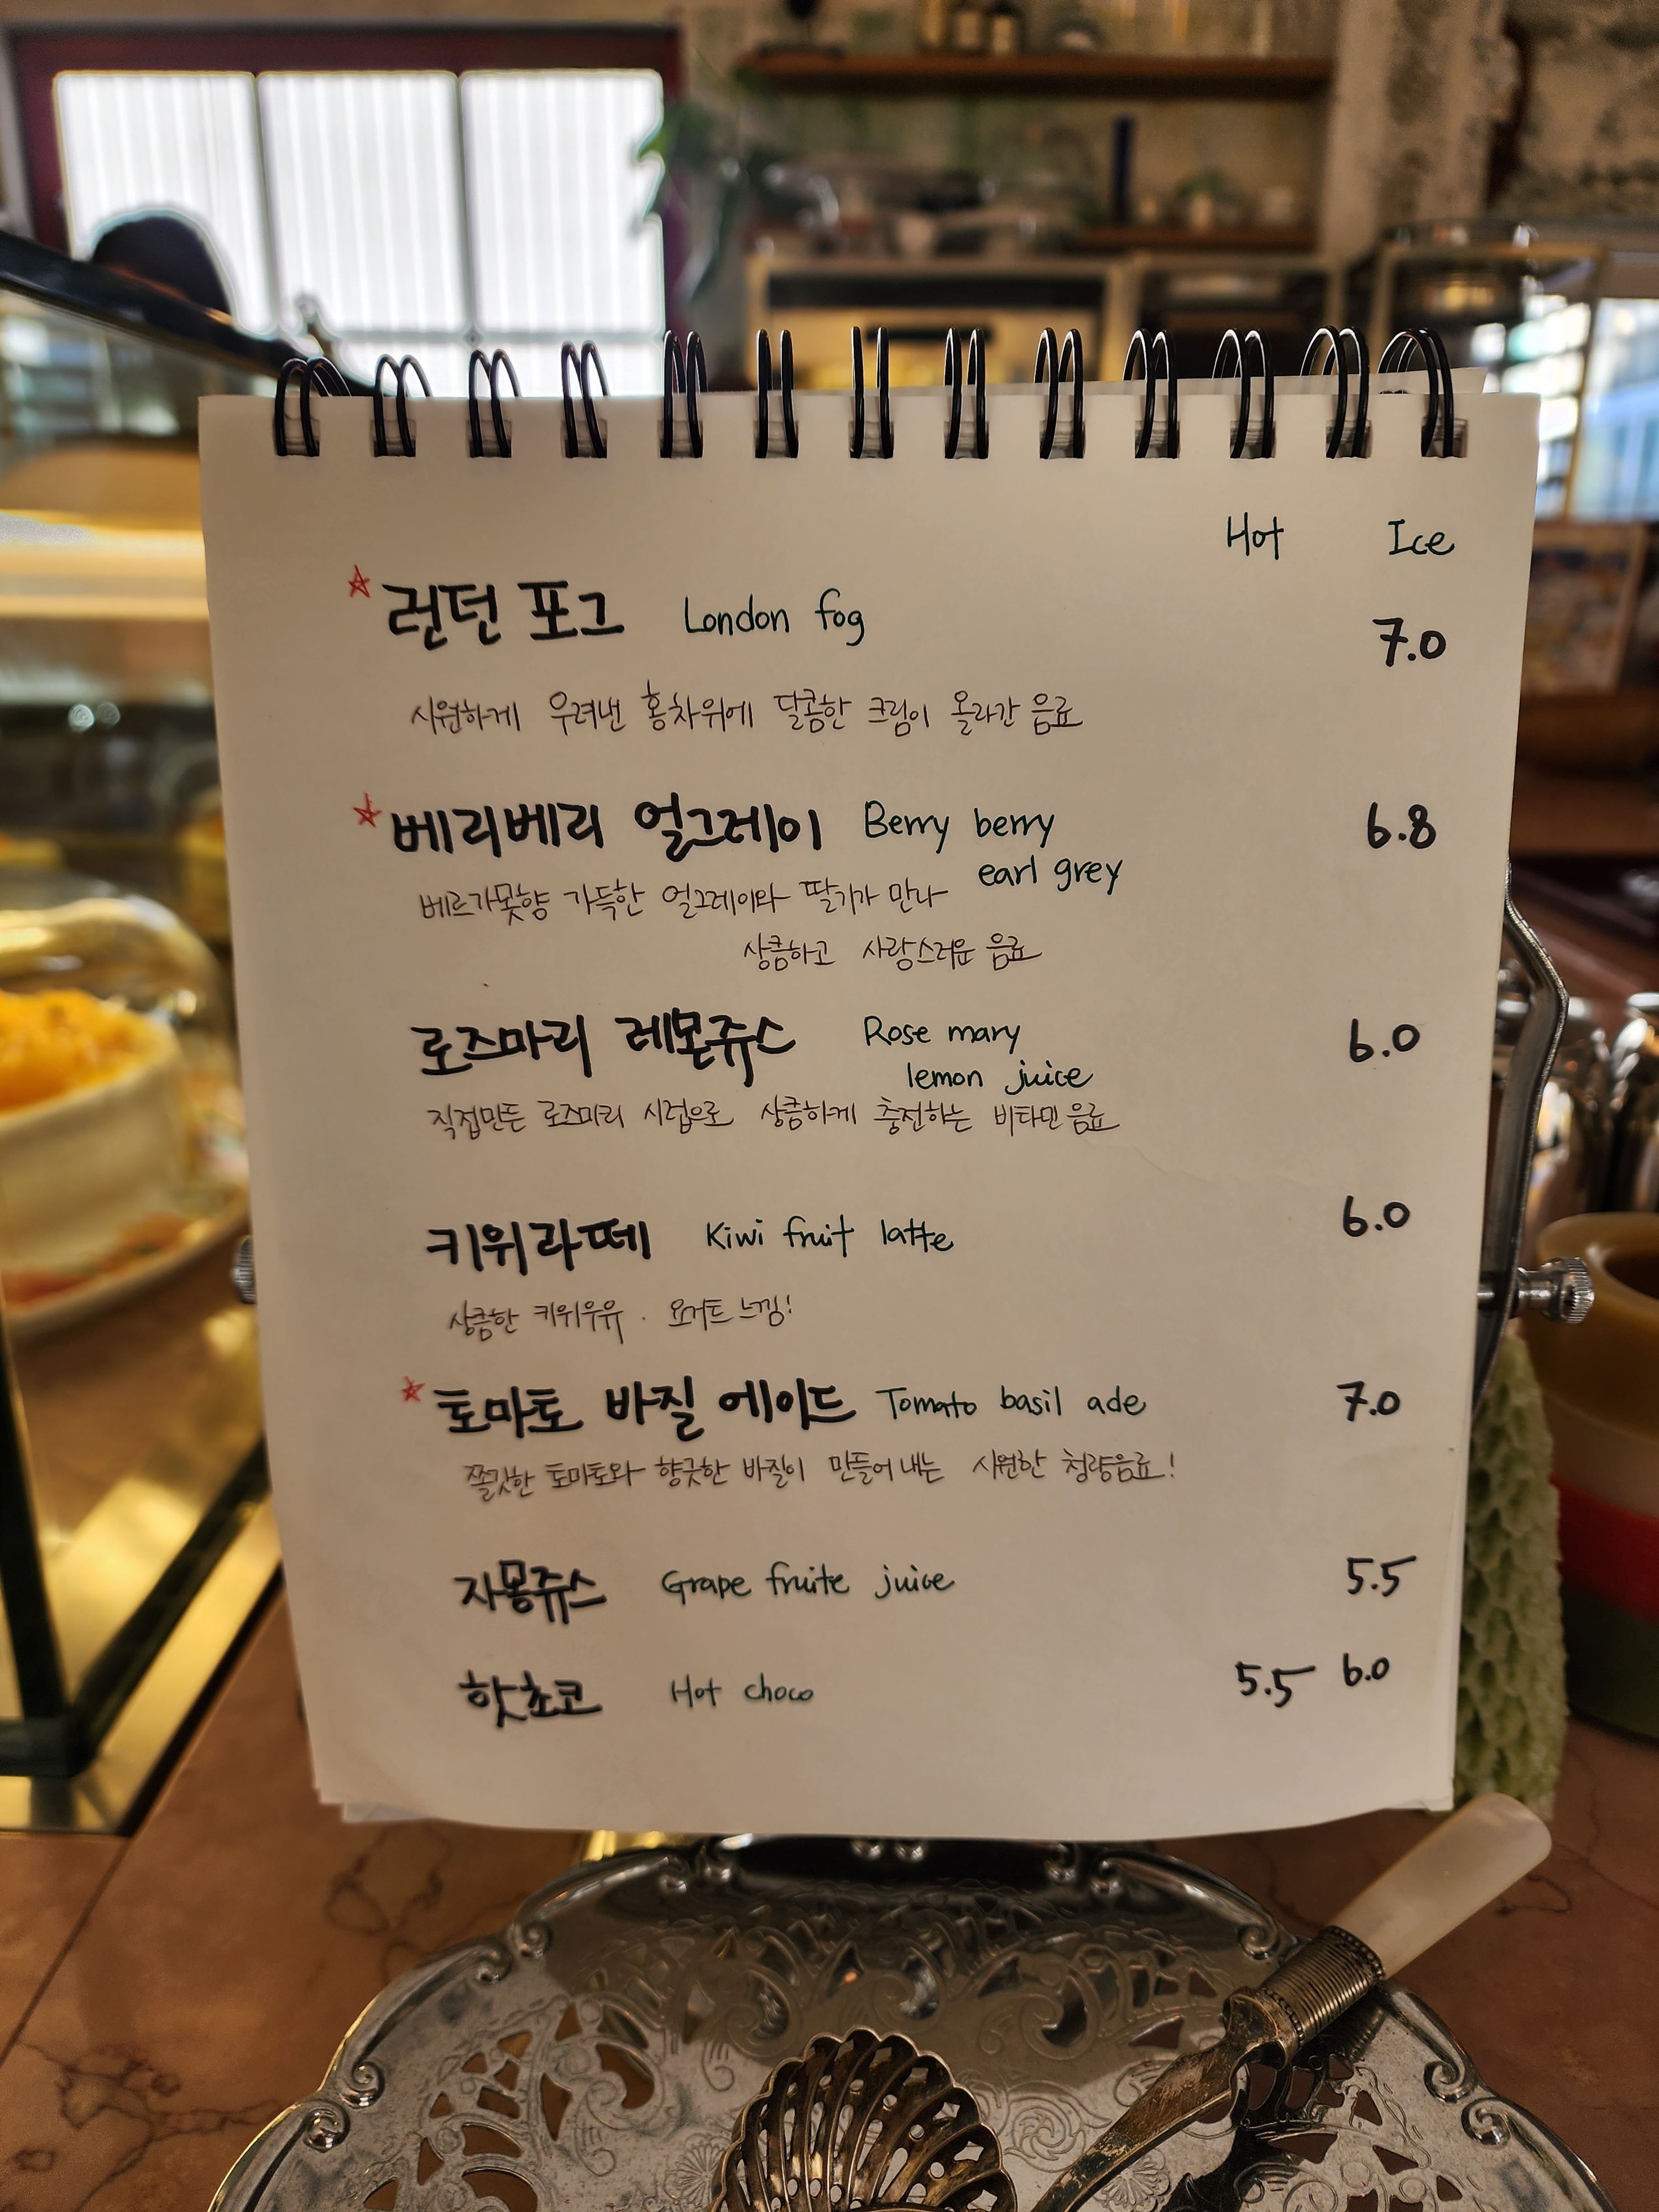 Hot Ice
런던 포그 London fog 7.0
시원하게 우려낸 홍차위에 달콤한 크림이 올라간 음료
베리베리 얼그레이 Berry berry 6.8
earl grey
베르가못향 가득한 얼그레이와 딸기가 만나
상큼하고 사랑스러운 음료
로즈마리 레몬쥬스 Rose mary 6.0
lemon juice
직접만든 로즈마리 시럽으로 상큼하게 충전하는 비타민 음료
키위라떼 Kiwi fruit latte 6.0
상큼한 키위우유 · 요거트 느낌!
토마토 바질 에이드 Tomato basil ade 7.0
쫄깃한 토마토와 향긋한 바질이 만들어 내는 시원한 청량음료!
자몽쥬스 Grape fruite juice 5.5
핫쵸코 Hot choco 5.5 6.0